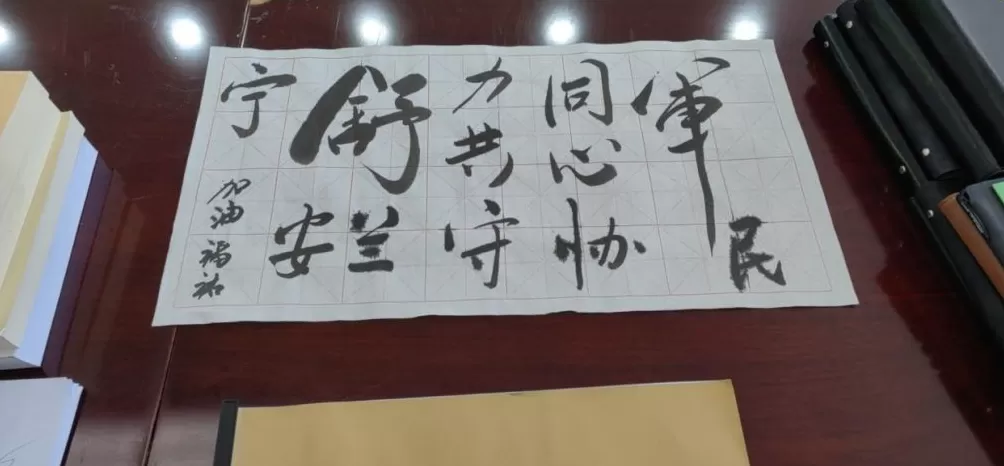 军民
同心协
力共守
舒兰安
宁
加油福祐